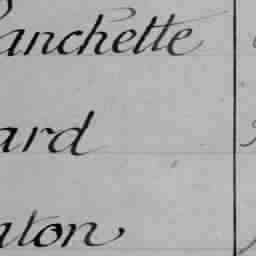 anchette
ard
ton